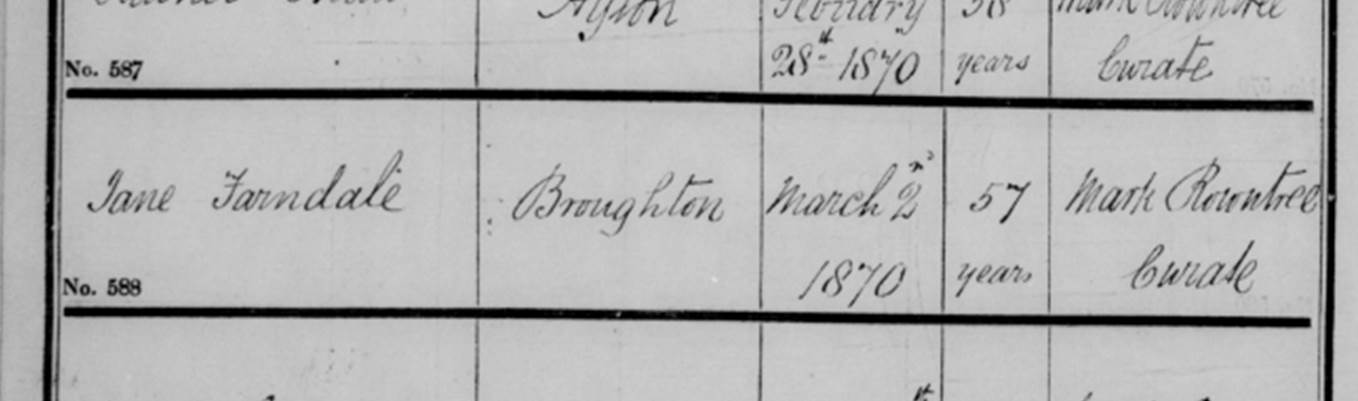 Ayton February 58 Mark Rowntree
No. 587 28th 1870 years Curate
Jane Farndale Broughton March 2nd 57 Mark Rowntree
No. 588 1870 years Curate